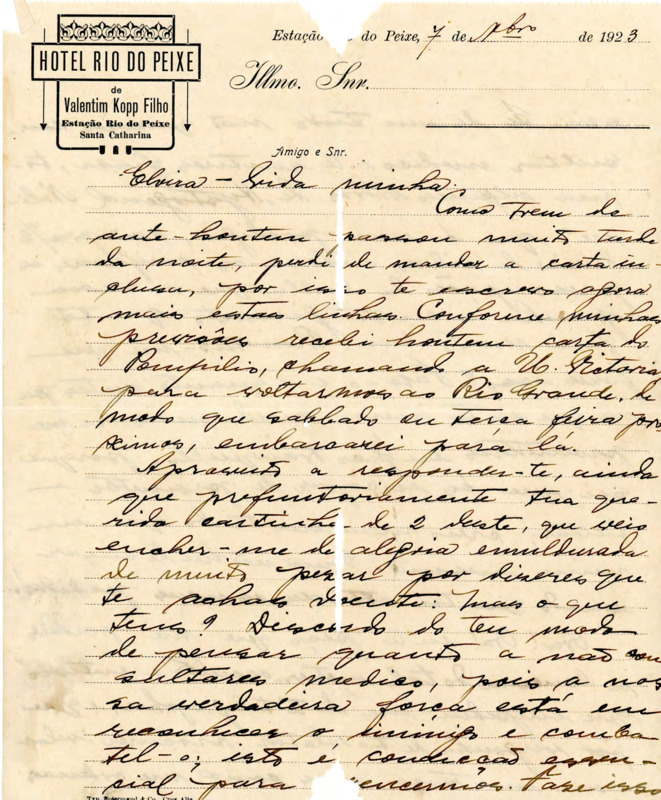 HOTEL RIO DO PEIXE
de
Valentim Kopp Filho
Estação Rio do Peixe
Santa Catharina
Estação do Peixe, 7 de 9bro de 1923
Illmo. Snr.
Amigo e Snr.
Elvira - Vida minha.
Como trem de
ante-hontem passou muito tarde
da noite, perdi de mandar a carta in-
clusa, por isso te escrevo agora
mais estas linhas. Conforme minhas
previsões recebi hontem carta do
Pompilio, chamando a U. Victoria
para voltarmos ao Rio Grande, de
modo que sabbado ou terça feira pro-
ximos, embarcarei para lá.
Aproveito a responder-te, ainda
que prefuntoriamente tua que-
rida cartinha de 2 deste, que veio
encher-me de alegria emuldurada
de muito pezar por dizeres que
te achas doente: mas o que
tens? Discordo do teu modo
de pensar quanto a não con
sultares medico, pois a nos
sa verdadeira força está em
reconhecer o inimigo e comba
tel-o; isto é condicção essen-
cial para vencermos. Faze isso
Typ. & Co. Cruz Alta